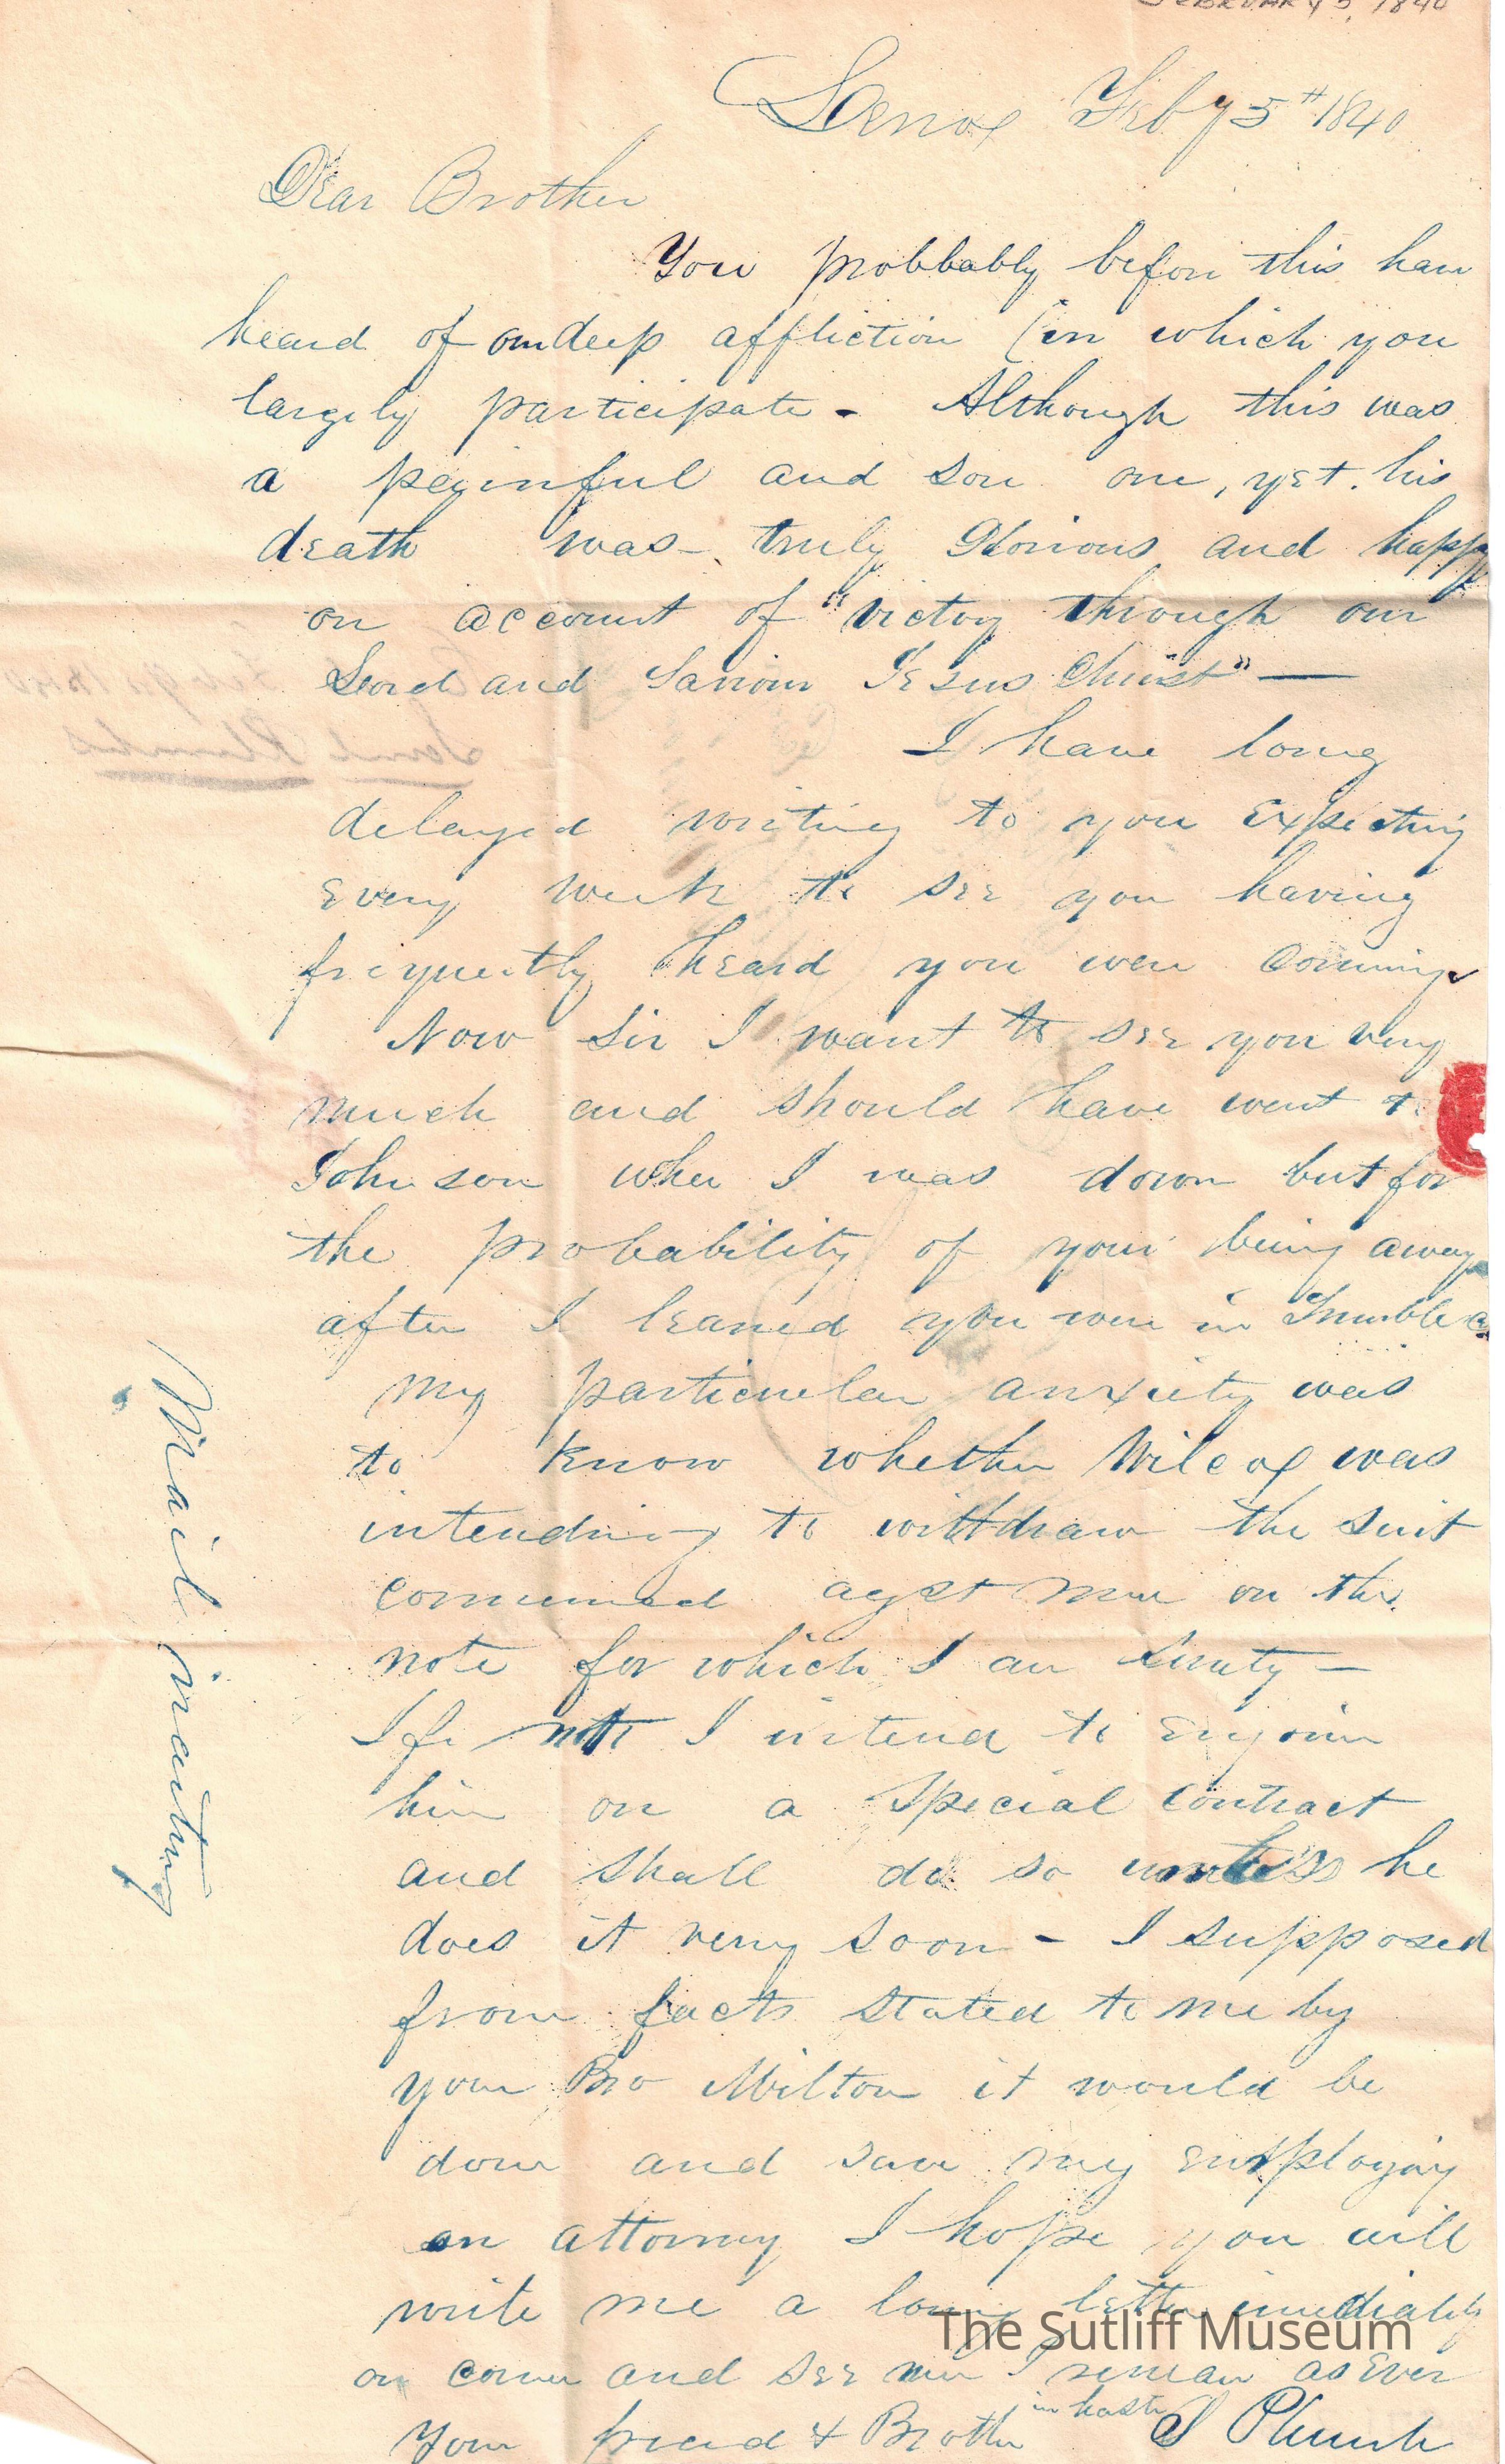 FEBRUARY 5, 1840
Lenox Feby 5th 1840
Dear Brother
You probbably before this have
heard of our deep affliction (in which you
largely participate - Although this was
a painful and sore one, yet his
death was truly Glorious and happy
on account of "victory through our
Lord and Saviour Jesus Christ" —
I have long
delayed writing to you expecting
every week to see you having
frequently heard you were comming
Now Sir I want to see you very
much and should have went to
Johnson when I was down but for
the probability of your being away
after I learned you were in Trumble Co
my particular anxiety was
to know whether Wilcox was
intending to withdraw the suit
commenced agst me on the
note for which I am Surety —
If not I intend to enjoin
him on a Special contract
and shall do so unless he
does it very soon - I supposed
from facts stated to me by
your Bro Milton it would be
done and save my employing
an attorney I hope you will
write me a long letter imediately
or come and see me I remain as ever
Your friend & Brother in haste S Plumb
Mail waiting
Saml Plumbs
The Sutliff Museum